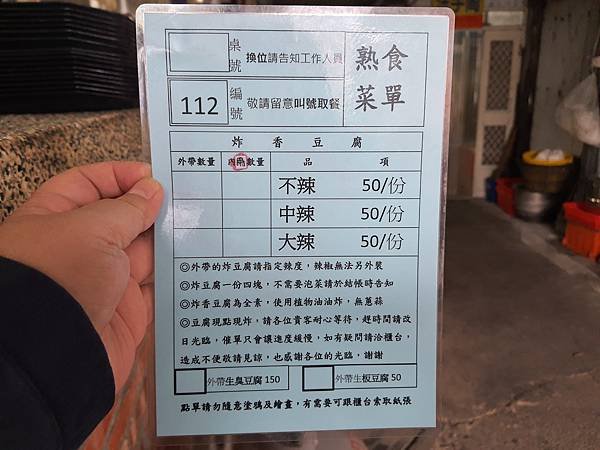 桌號 換位請告知工作人員
熟食菜單
112 編號 敬請留意叫號取餐
炸香豆腐
外帶數量 內用數量 品項
不辣 50/份
中辣 50/份
大辣 50/份
◎外帶的炸豆腐請指定辣度，辣椒無法另外裝
◎炸豆腐一份四塊，不需要泡菜請於結帳時告知
◎炸香豆腐為全素，使用植物油油炸，無蔥蒜
◎豆腐現點現炸，請各位貴客耐心等待，趕時間請改
日光臨，催單只會讓進度緩慢，如有疑問請洽櫃台，
造成不便敬請見諒，也感謝各位的光臨，謝謝
外帶生臭豆腐 150 外帶生板豆腐 50
點單請勿隨意塗鴉及繪畫，有需要可跟櫃台索取紙張